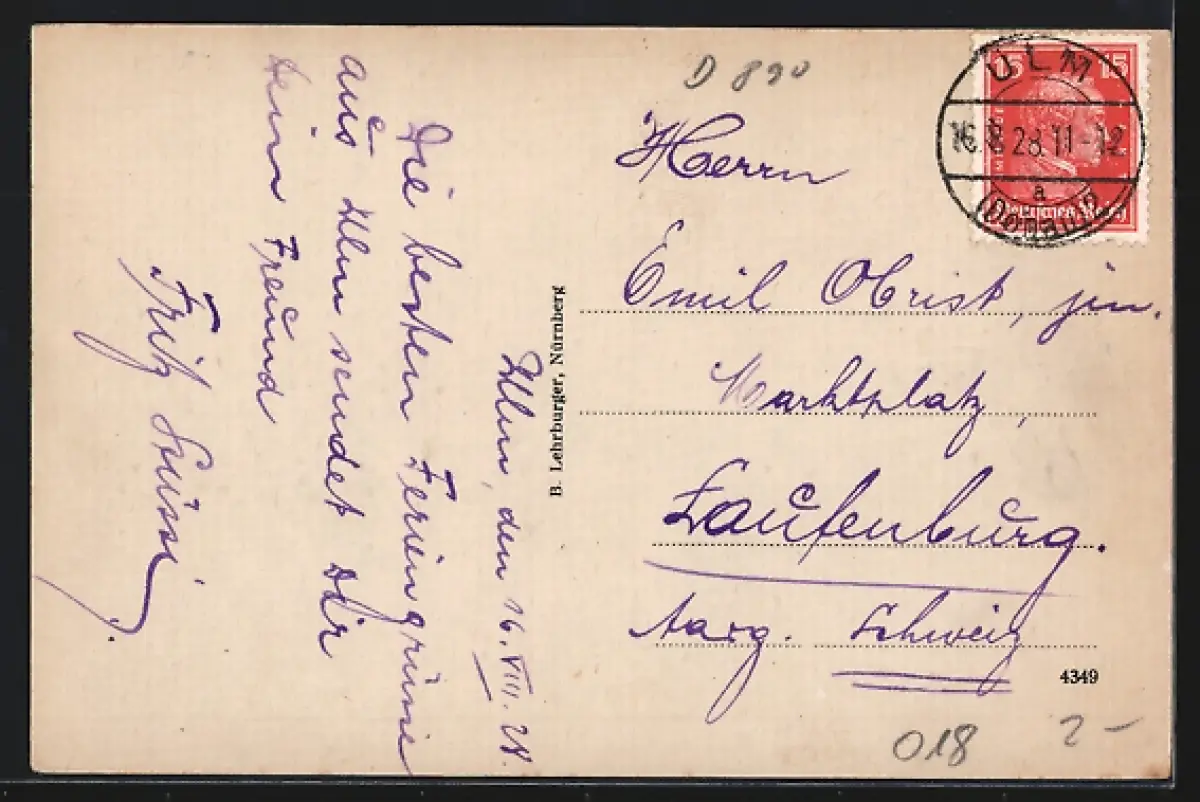 Ulm, den 16. VIII. 28.
Die besten Feriengrüsse
aus Ulm sendet Dir
Dein Freund
Fritz
B. Lehrburger, Nürnberg
D 890
15 15
ULM
16.8.28.11-12
a
(Donau)
Deutsches Reich
Herrn
Emil Obrist, jun.
Marktplatz,
Laufenburg.
Aarg. Schweiz
4349
018
2-